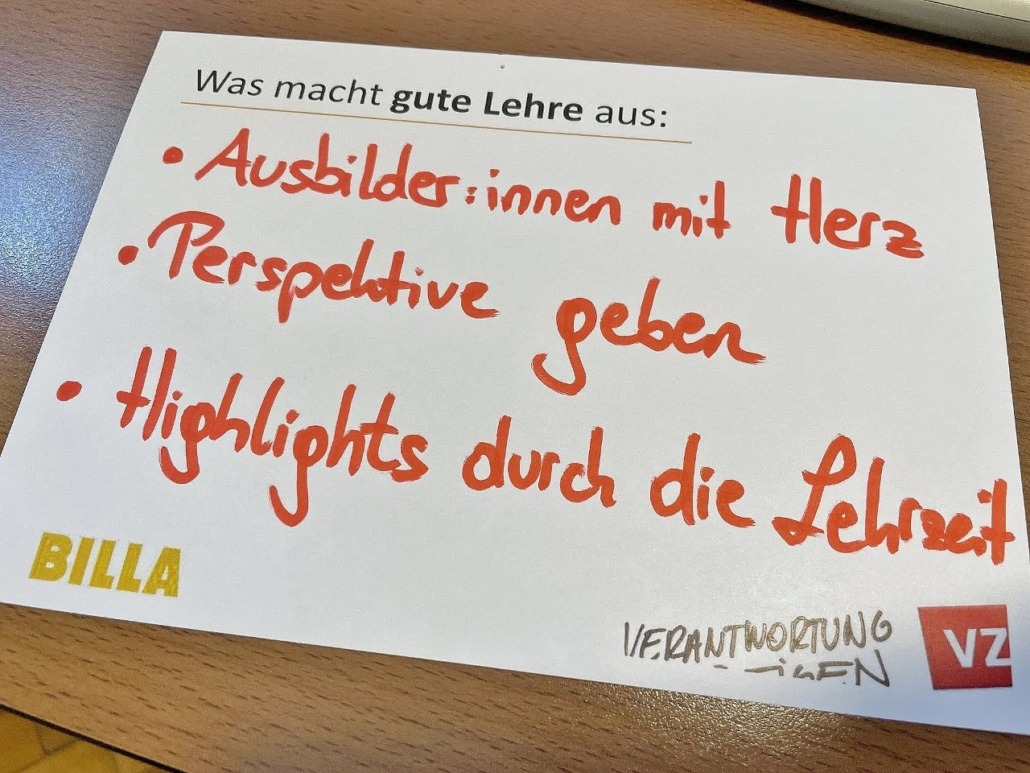 Was macht gute Lehre aus:
• Ausbilder:innen mit Herz
• Perspektive geben
• Highlights durch die Lehrzeit
BILLA
VERANTWORTUNG
VZ